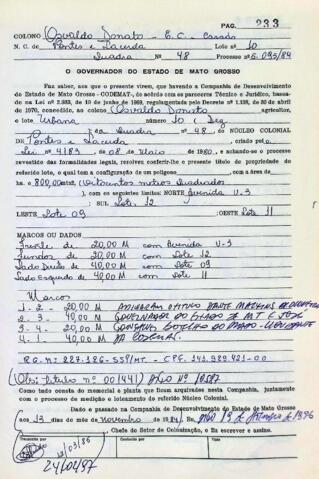 PAG. 233
COLONO Osvaldo Donato - E.C. Casado
N. C. de Pontes e Lacerda Lote nº 10
Quadra nº 48 Processo nº E-095/84
O GOVERNADOR DO ESTADO DE MATO GROSSO
Faz saber, aos que o presente virem, que havendo a Companhia de Desenvolvimento
do Estado de Mato Grosso - CODEMAT-, de acordo com os pareceres Técnico e Jurídico, baseado
na Lei nº 2.983, de 10 de junho de 1969, regulamentada pelo Decreto nº 1.138, de 30 de abril
de 1970, concedido, ao colono Osvaldo Donato agricultor,
o lote Urbana nº 10
Quadra nº 48 do NÚCLEO COLONIAL
DE Pontes e Lacerda, criado pela
Lei 4183 de 08 de Maio de 1980, e achando-se o processo
revestido das formalidades legais, resolveu conferir-lhe o presente título de propriedade
do referido lote, o qual tem a configuração de um polígono com a área de
ha 800,00 mts. (Oitocentos metros Quadrados)
, com os seguintes limites: NORTE Avenida U-3
: SUL Lote 12
LESTE Lote 09 : OESTE Lote 11
MARCOS OU DADOS
Frente de 20,00 M com Avenida U-3
Fundos de 20,00 M com Lote 12
Lado Direito de 40,00 M com Lote 09
Lado Esquerdo de 40,00 M com Lote 11
Marcos
1 - 2 - 20,00 M
2 - 3 - 40,00 M GOVERNADOR DO ESTADO DE MT E JOSÉ
3 - 4 - 20,00 M
4 - 1 - 40,00 M
(Obs: título nº 001441)
Como tudo consta do memorial e planta que ficam arquivados nesta Companhia, juntamente
com o processo de medição e loteamento do referido Núcleo Colonial.
Dado e passado na Companhia de Desenvolvimento do Estado de Mato Grosso
aos 13 dias do mês de novembro de 1984
, Chefe do Setor de Colonização, o fiz escrever e assino.